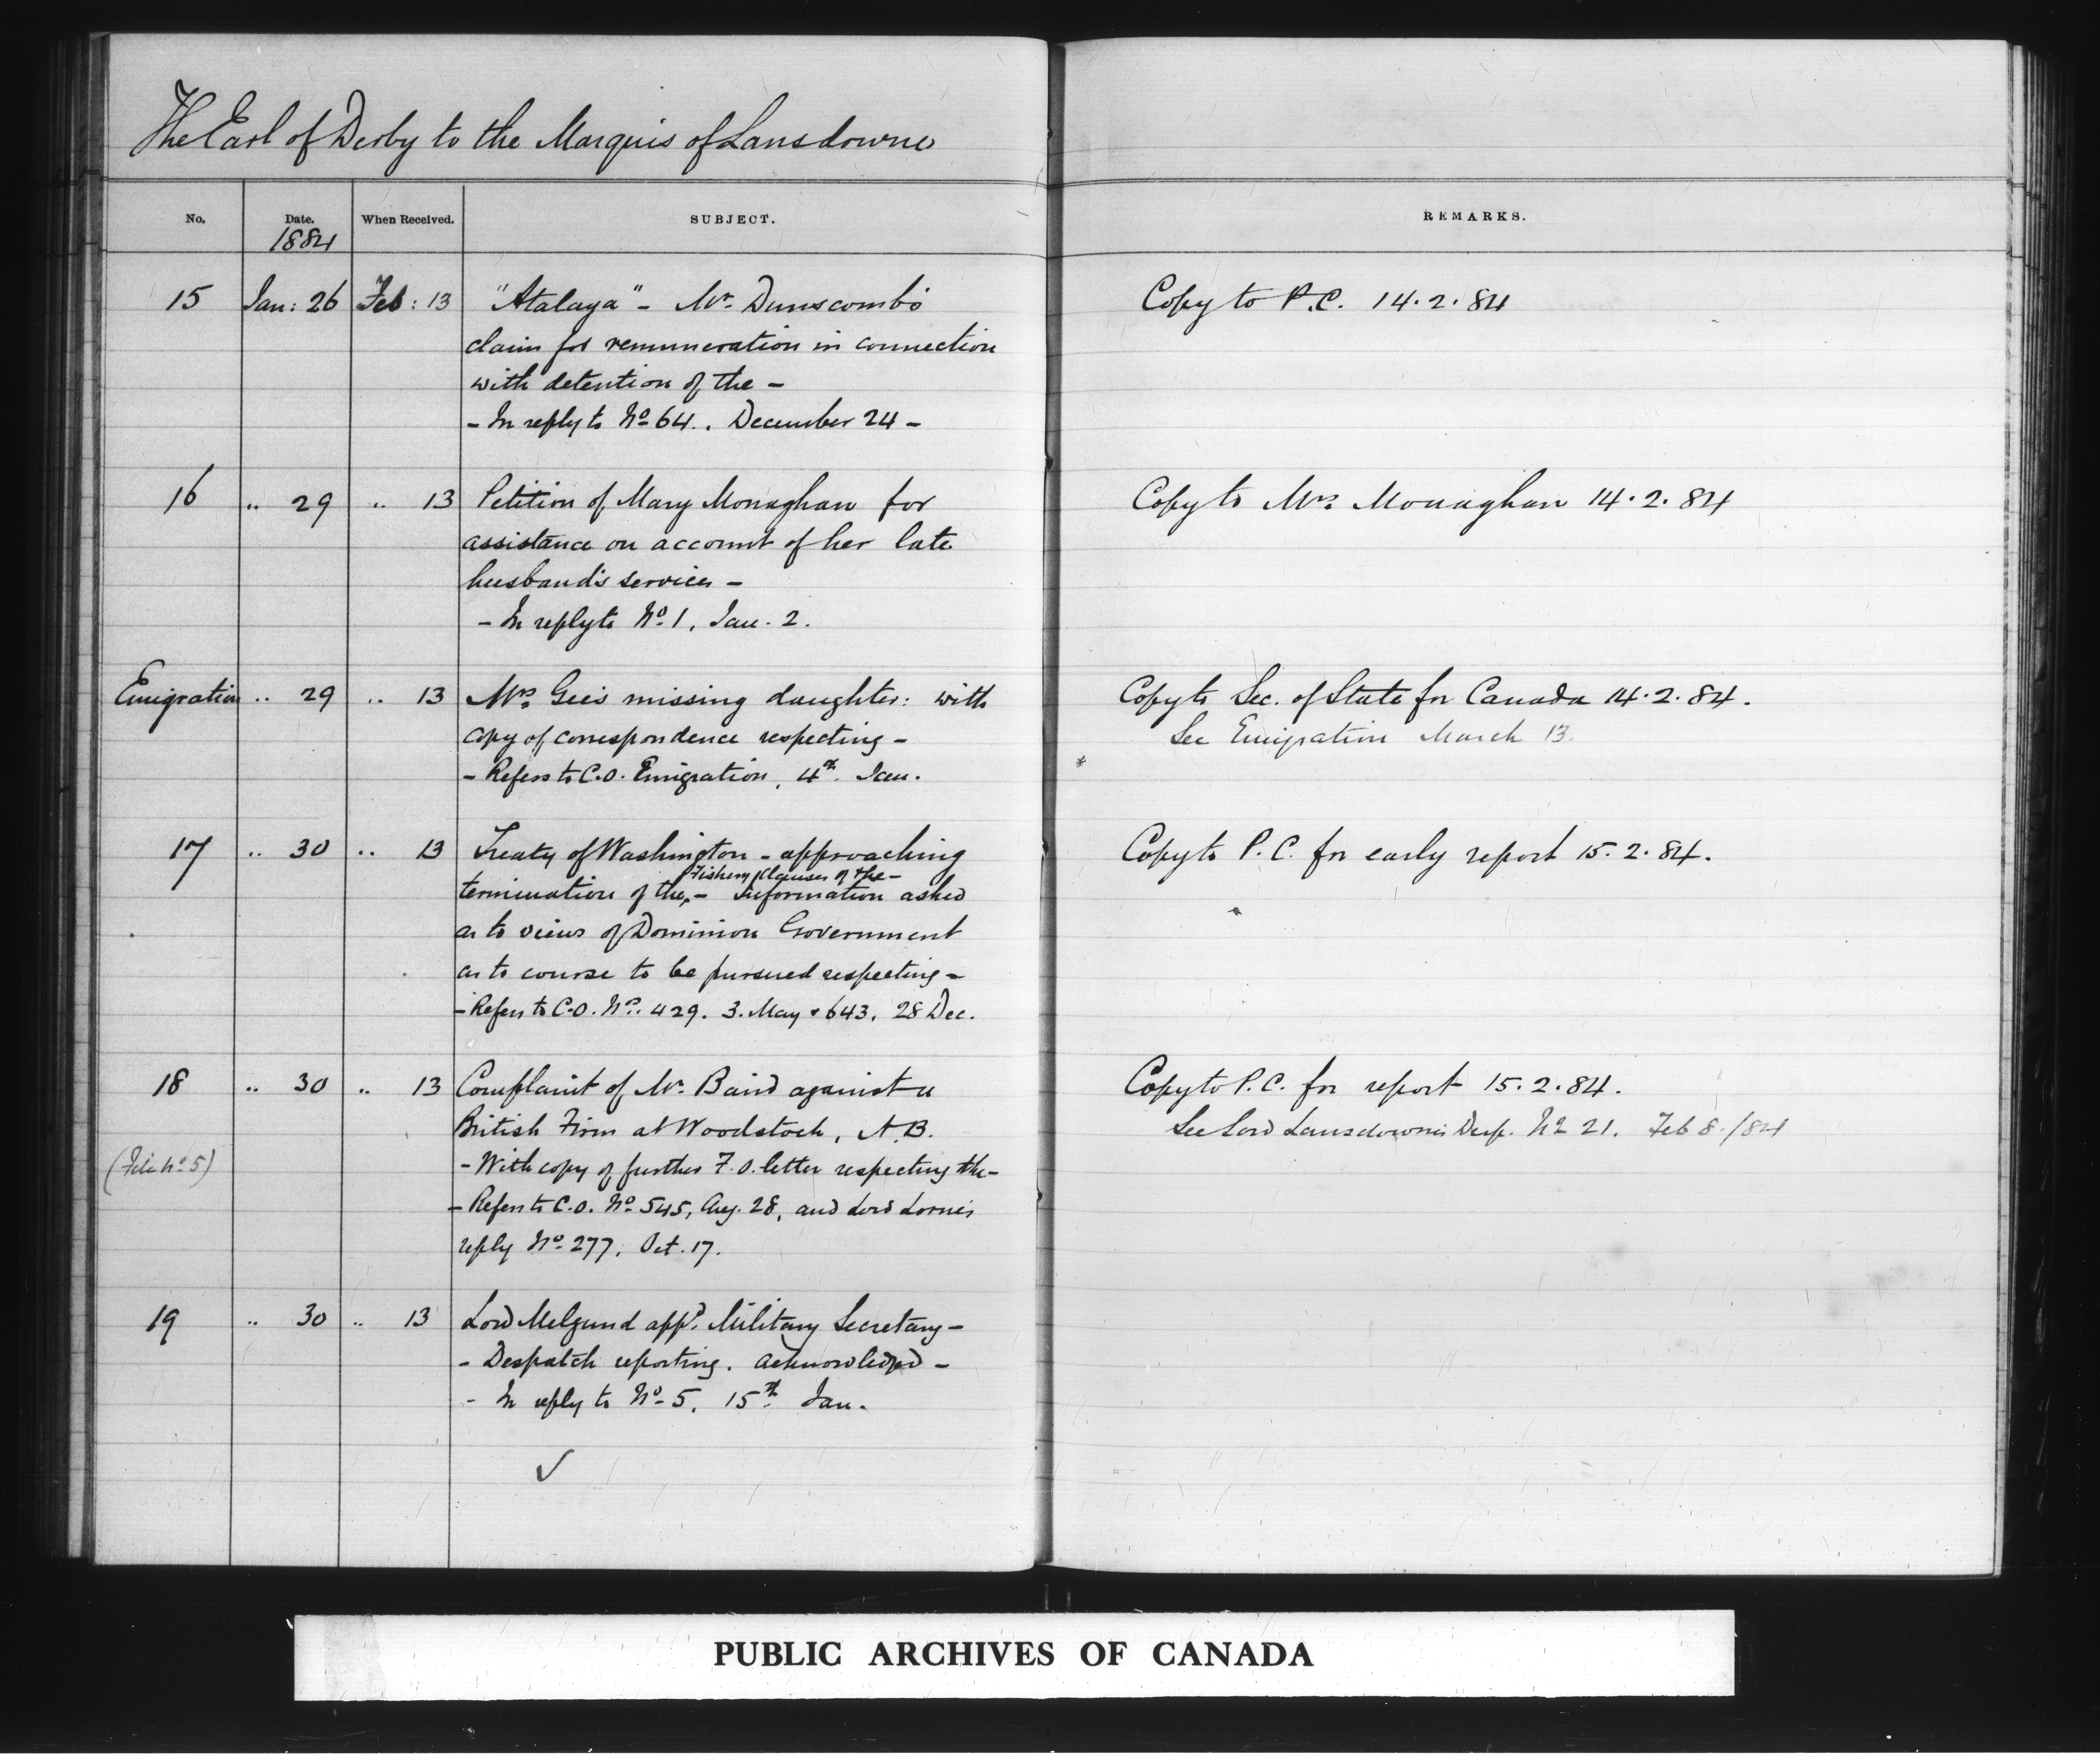 The Earl of Derby to the Marquis of Lansdowne
No. Date. When Received. SUBJECT. REMARKS.
1884
15 Jan: 26 Feb: 13 "Atalaya" - Mr. Dunscomb's Copy to P.C. 14.2.84
claim for remuneration in connection
with detention of the -
- In reply to No 64. December 24 -
16 " 29 " 13 Petition of Mary Monaghan for Copy to Mrs. Monaghan 14.2.84
assistance on account of her late
husband's services -
- In reply to No 1, Jan. 2.
Emigration " 29 " 13 Mrs. Gee's missing daughter: with Copy to Sec. of State for Canada 14.2.84.
copy of correspondence respecting - See Emigration March 13.
- Refers to C.O. Emigration, 4th Jan.
17 " 30 " 13 Treaty of Washington - approaching Copy to P.C. for early report 15.2.84.
Fishery Clauses of the -
termination of the, - information asked
as to views of Dominion Government
as to course to be pursued respecting -
- Refers to C.O. Nos. 429. 3. May & 643, 28 Dec.
18 " 30 " 13 Complaint of Mr. Baird against a Copy to P.C. for report 15.2.84.
British Firm at Woodstock, N.B. See Lord Lansdowne's Desp. No 21. Feb 8/84
(File No 5) - With copy of further F.O. letter respecting the -
- Refers to C.O. No 545, Aug. 28, and Lord Lorne's
reply No 277, Oct. 17.
19 " 30 " 13 Lord Melgund appd. Military Secretary -
- Despatch reporting. acknowledged -
- In reply to No 5, 15th Jan.
✓
PUBLIC ARCHIVES OF CANADA